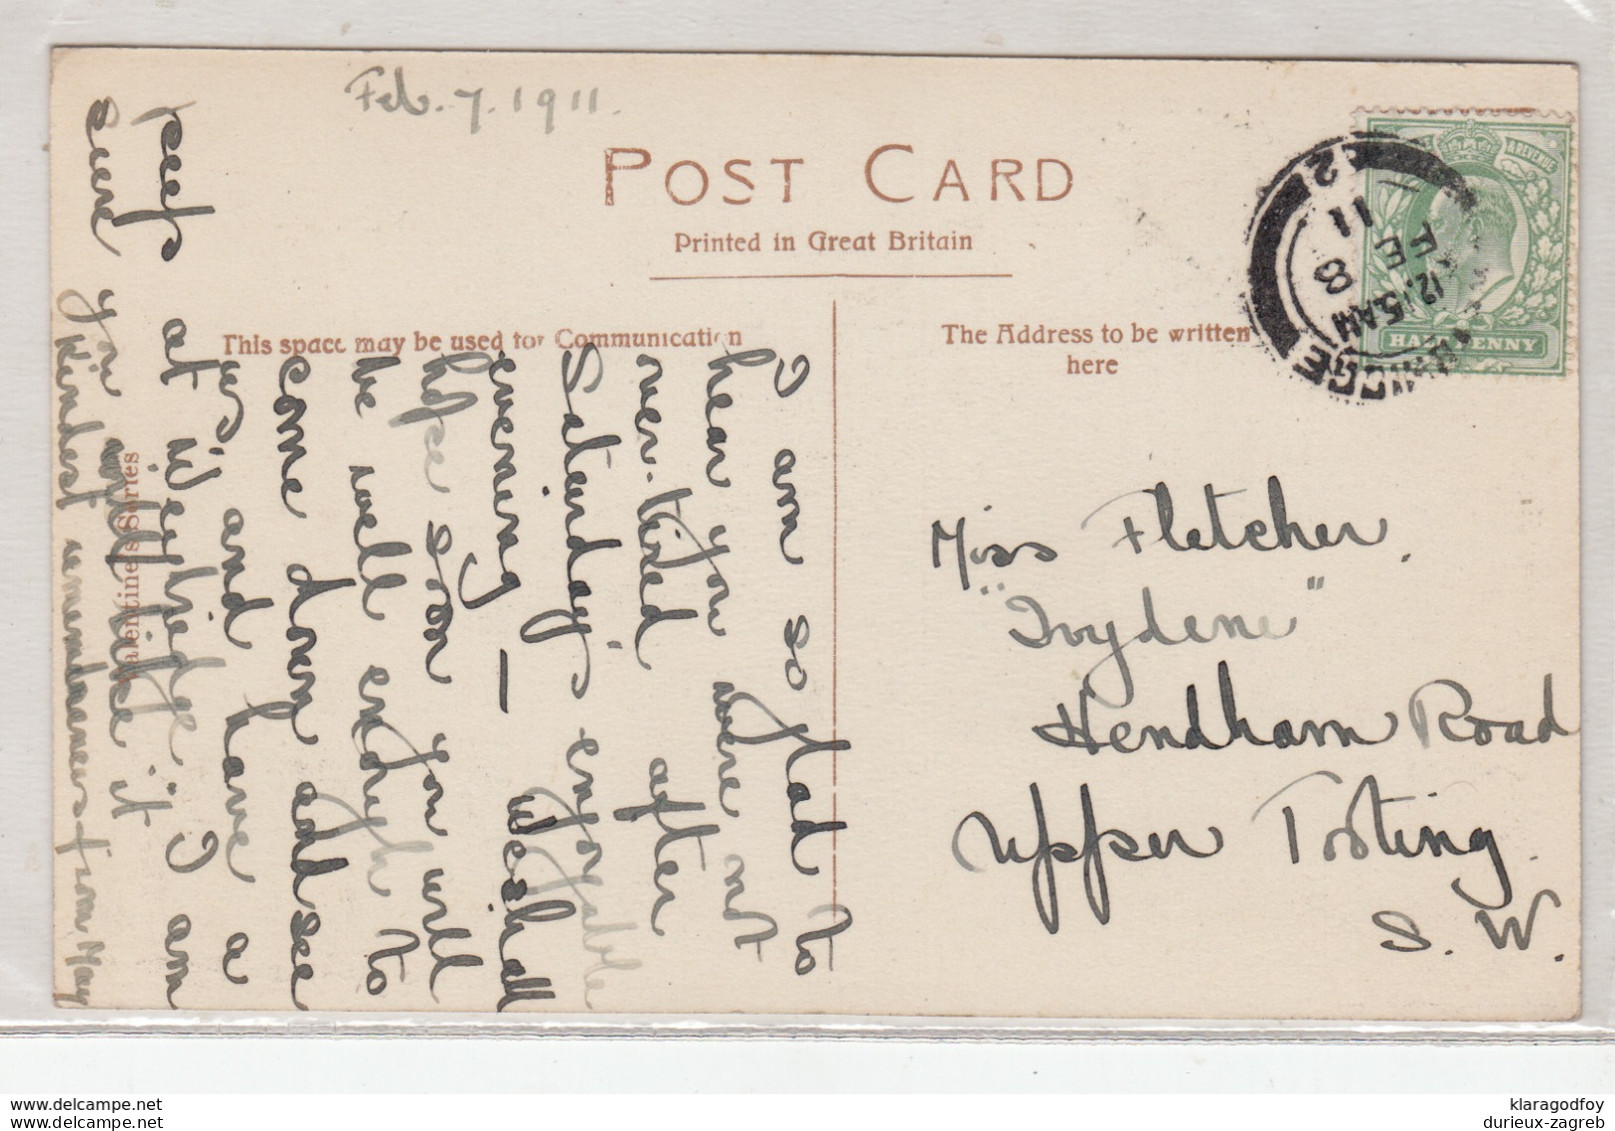 Feb. 7. 1911.
POST CARD
Printed in Great Britain
This space may be used for Communication
The Address to be written
here
I am so glad to
hear you were not
over-tired after
Saturday's enjoyable
evening — We shall
hope soon you will
be well enough to
come down and see
us, and have a
peep at Weybridge. I am
sure you will like it
Kindest remembrances from May
Valentine's Series
Miss Fletcher,
"Ivydene"
Hendham Road
Upper Tooting
S. W.
2
11
FE
8
12.15AM
& REVENUE
HALFPENNY
klaragodfoy
durieux-zagreb